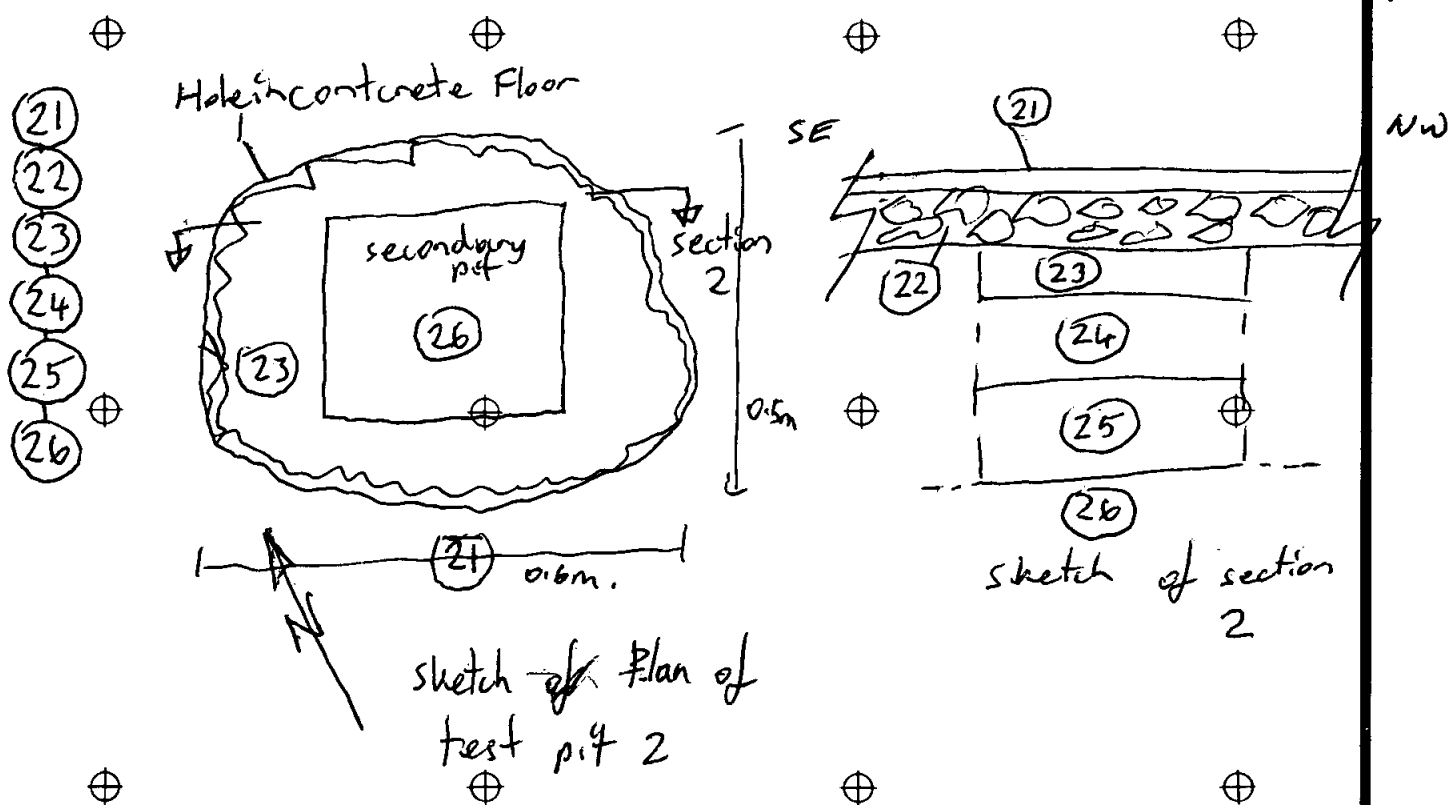 21
22
23
24
25
26
Hole in contcrete Floor
secondary
pit
26
23
section
2
0.5m
21
0.6m.
N
sketch of Plan of
test pit 2
SE
NW
21
22
23
24
25
26
sketch of section
2